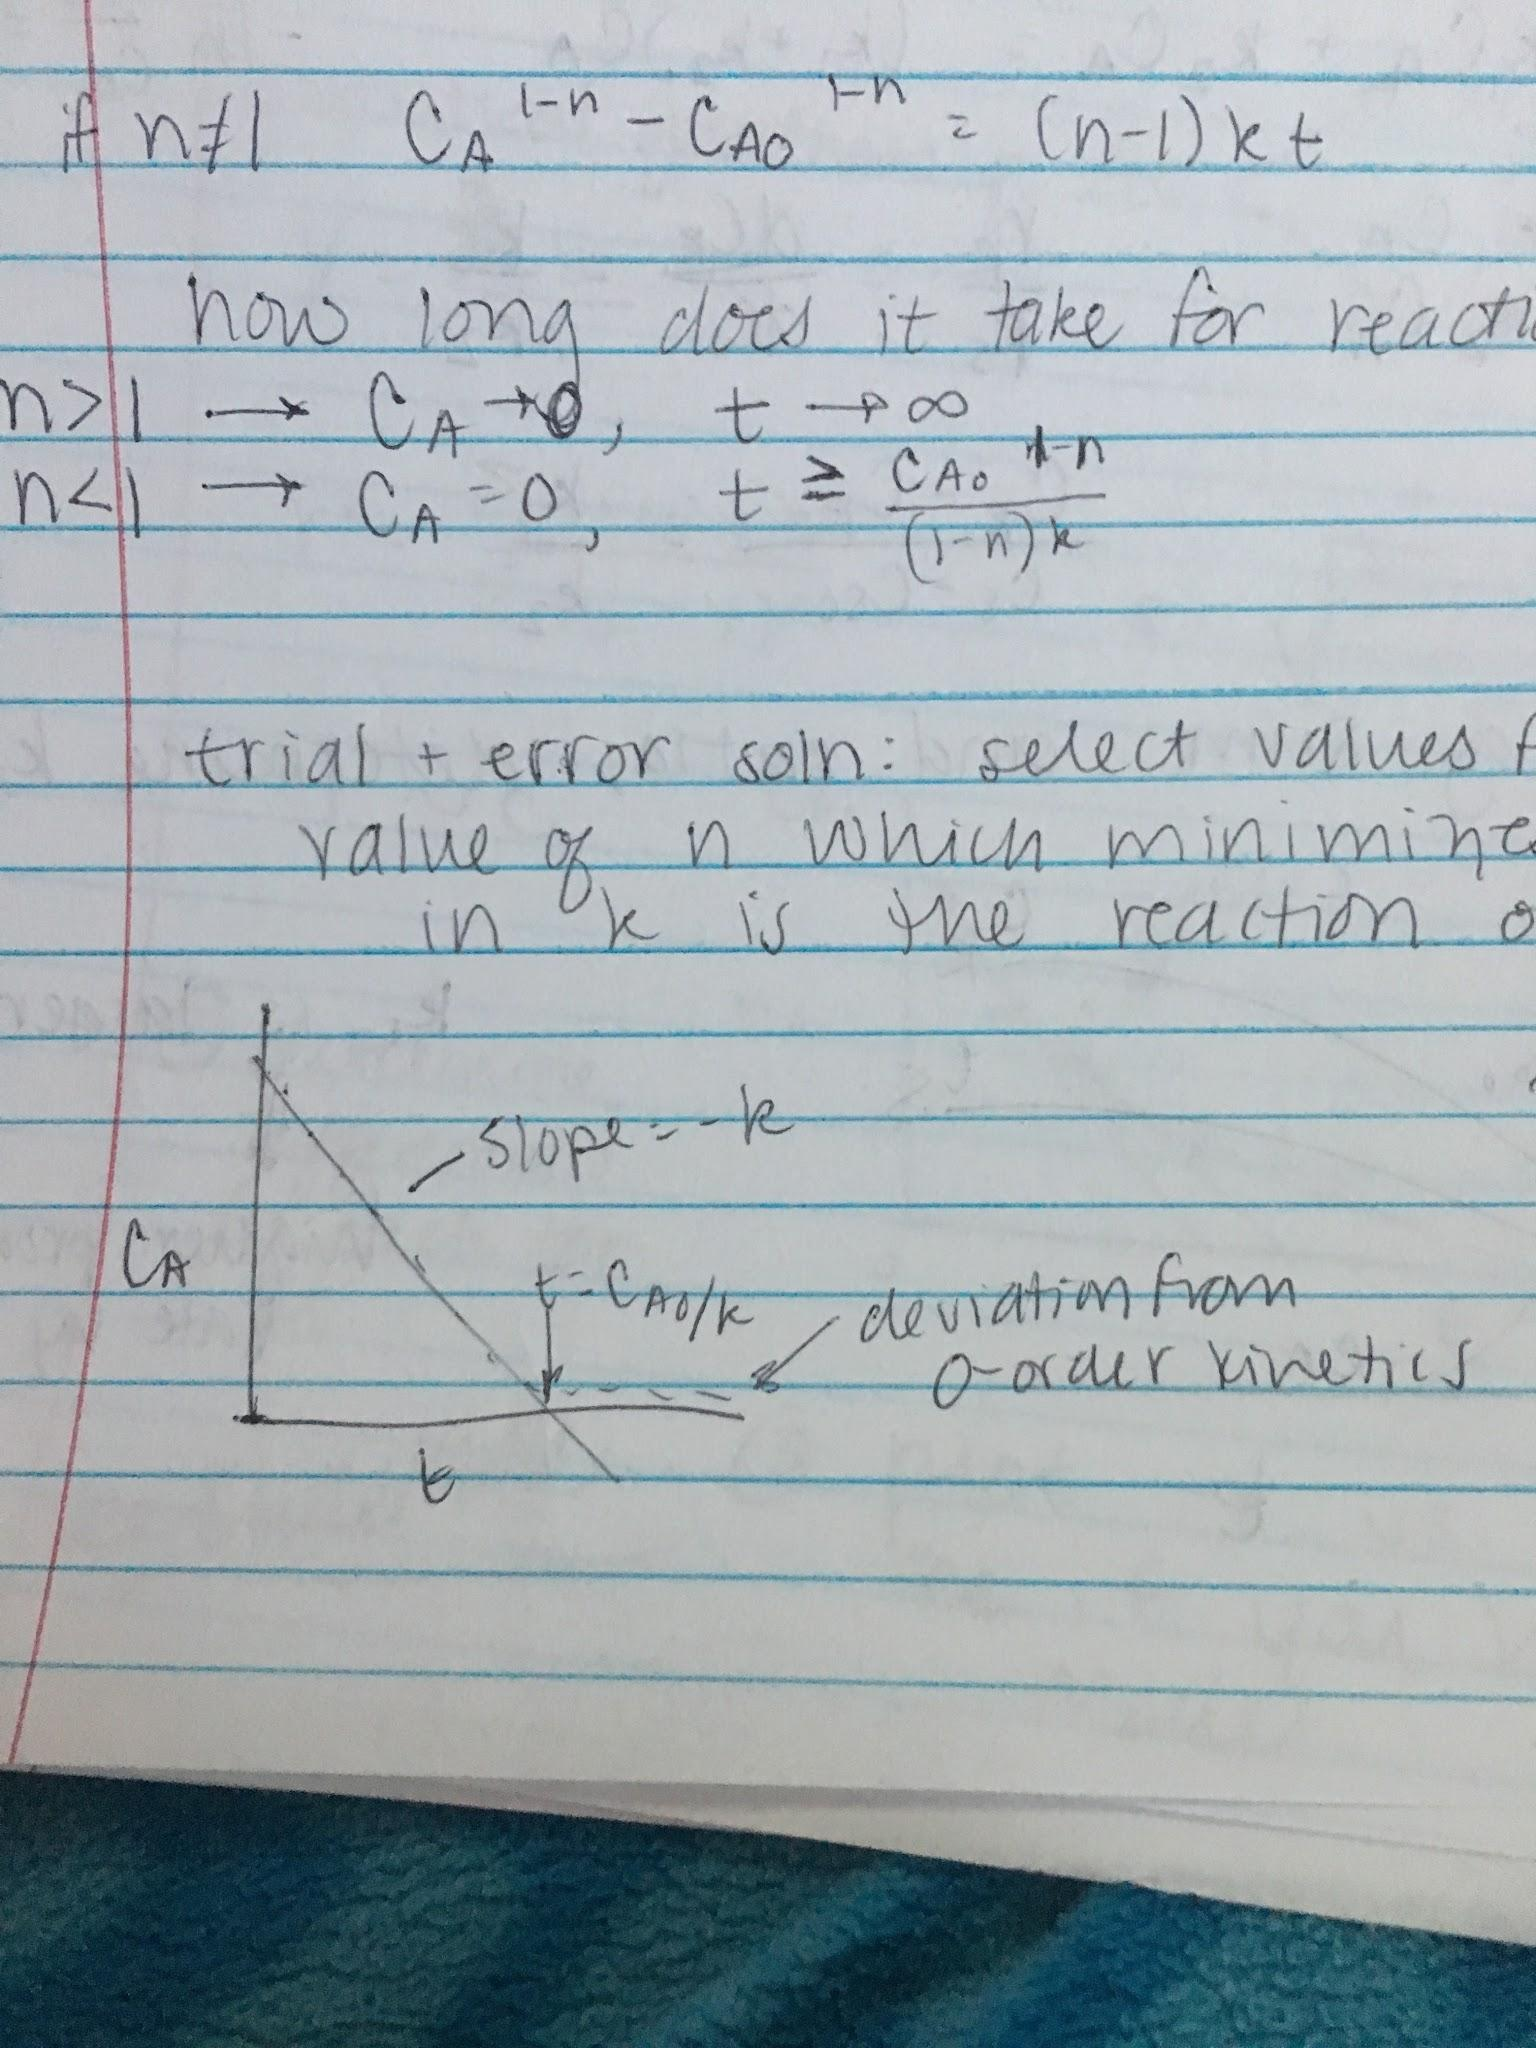 if n≠1 C_A^{1-n} - C_{A0}^{1-n} = (n-1)kt
how long does it take for
n>1 → C_A → 0, t → ∞
n<1 → C_A = 0, t ≥ \frac{C_{A0}^{1-n}}{(1-n)k}
trial + error soln: select values
value of n which
in k is the reaction
slope = -k
C_A
t = C_{A0}/k
deviation from
0-order kinetics
t